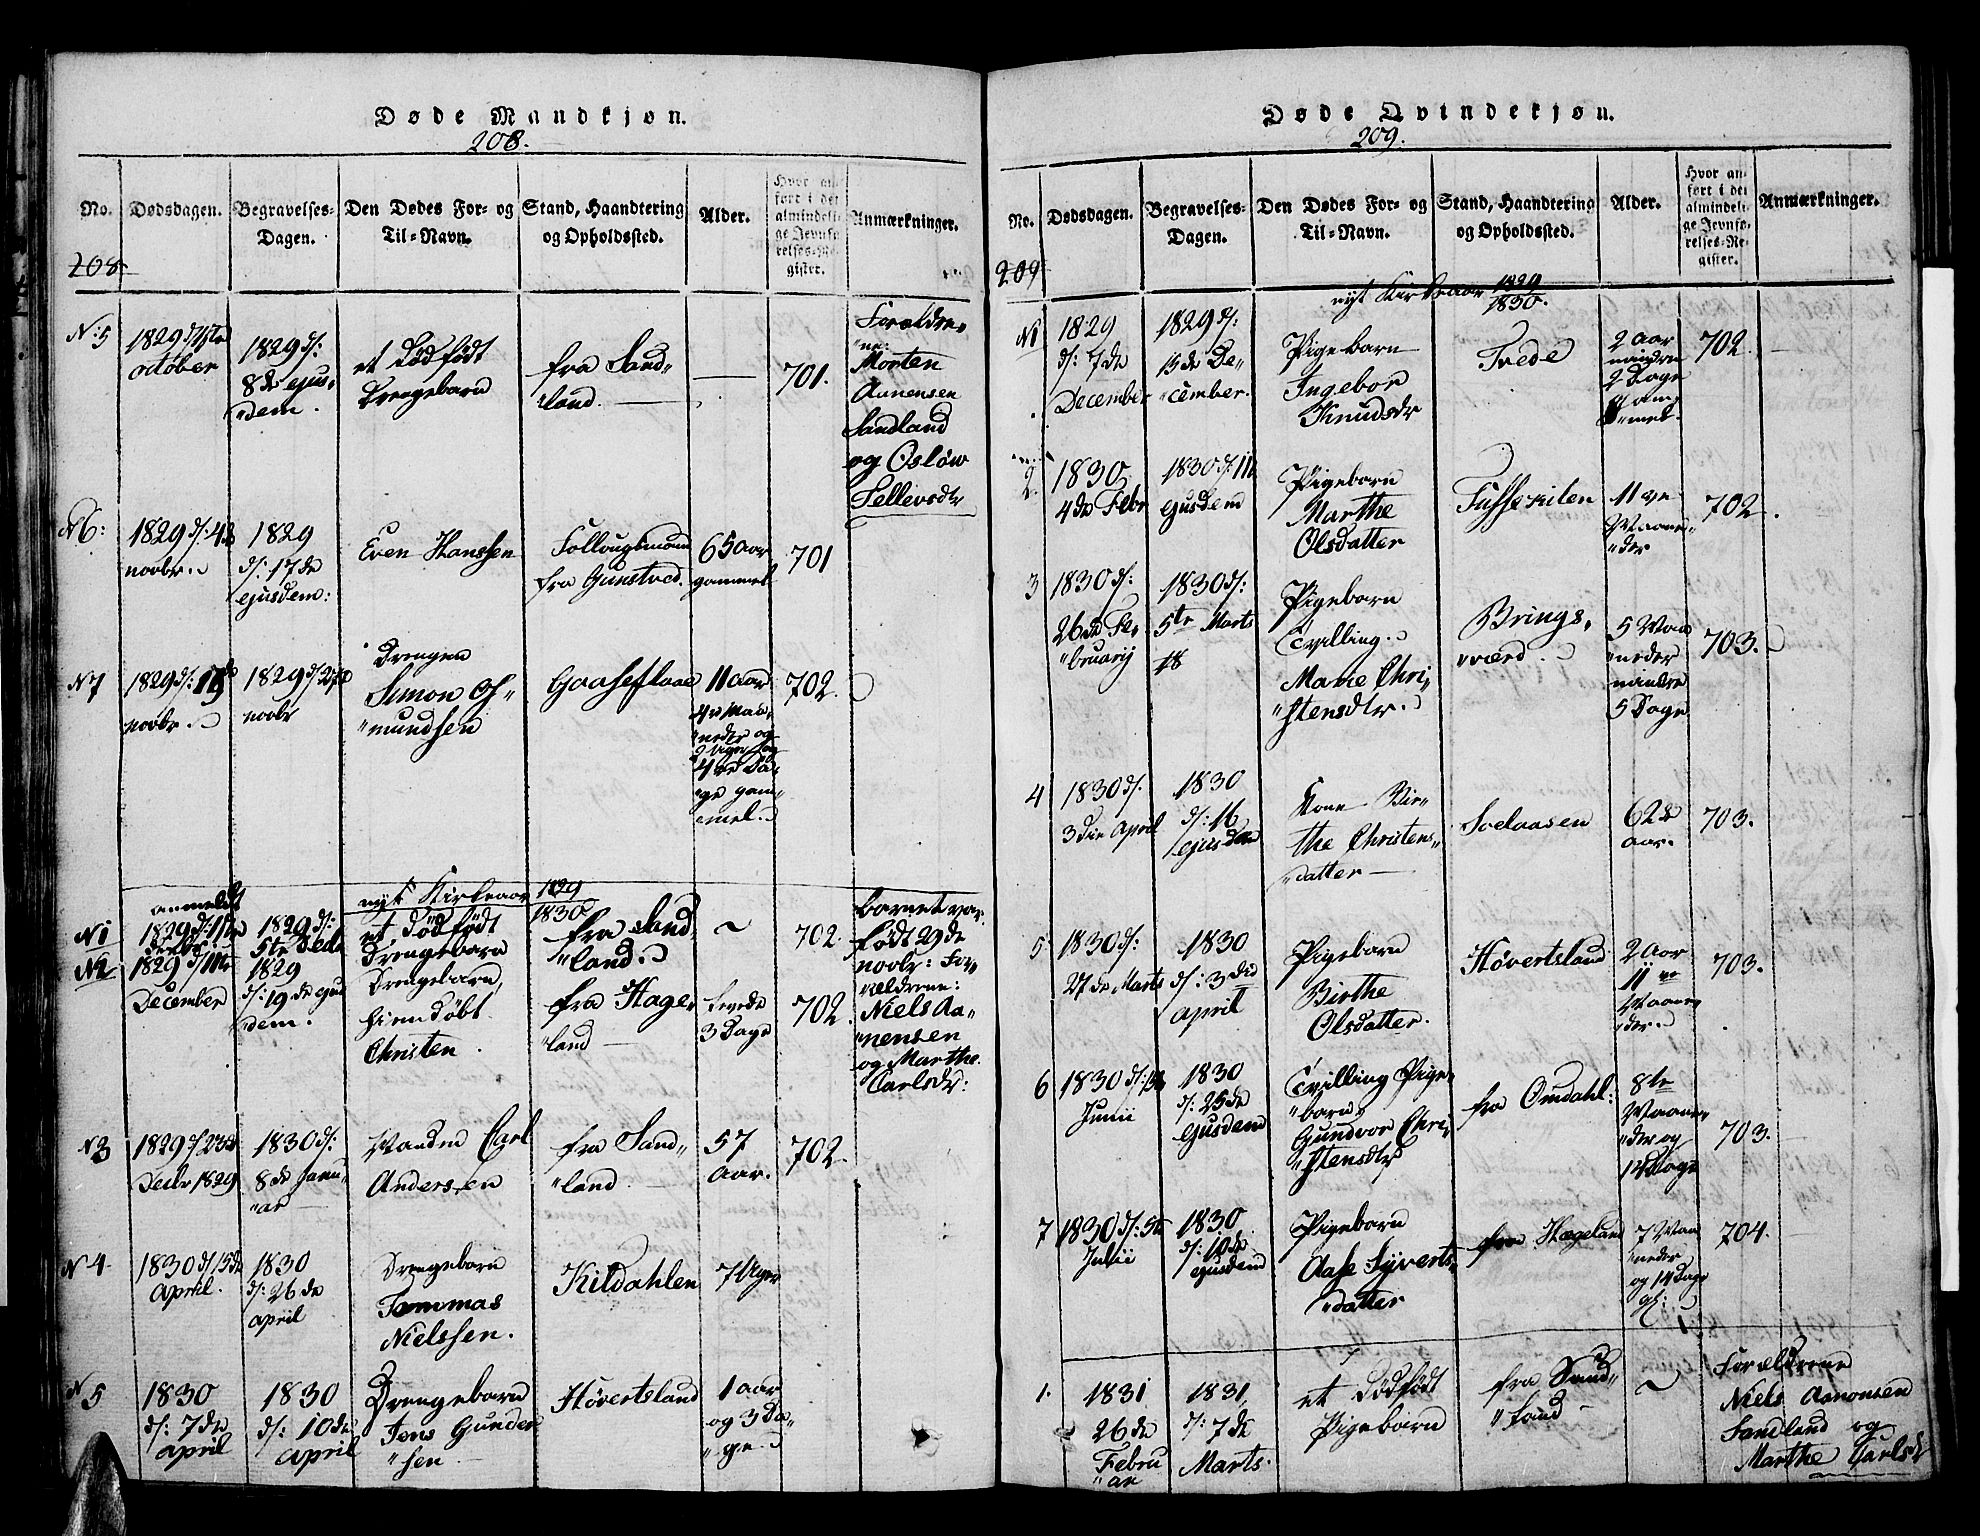 Døde Mandkjøn.
208.
No.
Dødsdagen.
Begravelses-
Dagen.
Den Dødes For- og
Til-Navn.
Stand, Haandtering
og Opholdssted.
Alder.
Hvor an-
ført i det
almindeli-
ge Jevnfø-
relses-Re-
gister.
Anmærkninger.
208
N: 5
1829 d/ 1ste
october
1829 d/:
8de ejus-
"dem.
et Dødfødt
Drengebarn
fra Sand-
"land.
701.
Forældre-
"ne:
Morten
Aanensen
Sandland
og Osløw
Tellevsdtr
N6:
1829 d/: 4de
novbr.
1829
d/: 17de
ejusdem:
Even Hanssen
Follougsmand
fra Gunstved.
65 aar
gammel
701
N7
novbr.
novbr
Drengen
Simon Os-
"mundsen
Gaaseflaae
11 aar
4re Maa-
"neder og
2 Uger og
4re Da-
"ge gam-
"mel.
702.
nyt Kirkeaar 1829
1830
N1
anmeldt
1829 d/: 11te
1829 d/:
5te Decbr
et dødfødt
Drengebarn
fra Sand-
"land.
~
702.
barnet var
født 29de
novbr: For-
"ældrene:
Niels Aa-
"nensen
og Marthe
Carlsdr:
N2
December
1829
d/: 19de ejus
"dem.
Drengebarn,
hiemdøbt
Christen.
fra Hage-
"land
levede
3 Dage
702.
N3
1829 d/ 23de
Decbr 1829
1830 d/:
8de Janu-
"ar
Manden Carl
Andersen
fra Sand-
"land
57
aar.
702.
N4
1830 d/ 15de
April.
1830
d/: 26de
april
Drengebarn
Tommas
Nielssen.
Kildahlen
7 Uger
N5
1830
d/: 7de
april
1830
d/: 10de
april
Drengebarn
Jens Gunder
"sen
Høvertsland
1 aar
og 3 Da-
"ge
Døde Qvindekjøn.
209.
No.
Dødsdagen.
Begravelses-
Dagen.
Den Dødes For- og
Til-Navn.
Stand, Haandtering
og Opholdssted.
Alder.
Hvor an-
ført i det
almindeli-
ge Jevnfø-
relses-Re-
gister.
Anmærkninger.
209
nyt Kirkeaar 1829
1830.
N1
1829
d/: 7de
December
1829 d/:
13de De-
"cember.
Pigebarn
Ingebor
Knudsdr
Tvede
2 aar
mindre
2 Dage
gam-
"mel.
702.
2.
1830
4de Febr
1830 d/: 11te
ejusdem
Pigebarn
Marthe
Olsdatter
11 ve
Maane-
"der
702.
3
1830 d/:
26de Fe-
"bruarij
1830 d/:
5te Marts
Pigebarn
Tvilling.
Marie Chri-
"stensdtr.
Brings-
"værd.
5 Maa
"neder
mindre
5 Dage
703.
4
1830 d/.
3die April
1830
d/: 16
ejusdem
Kone Bir-
the Christens-
"datter
Soelaasen
62de
aar.
703.
5
1830 d/:
27de Marts
1830
d/: 3die
april
Pigebarn
Birthe
Olsdatter.
Høvertsland
2 aar
11 ve
Maane-
"der.
703.
6
Junii
1830
d/: 25de
ejusdem
Tvilling Pige-
"barn
Gundvor Chri-
"stensdtr
fra Omdahl:
8te
Maane-
"der og
14 Dage
703.
7
1830 d/: 5te
Julii
1830
d/: 10de
ejusdem
Pigebarn
Aase Syverts-
"datter
fra Hægeland
7 Maa
"neder
og 14 Dage
gl:
704.
1.
1831
26de
Febru
"ar
1831,
d/: 7de
Marts.
et Dødfødt
Pigebarn
fra Sand-
"land
~
Forældrene
Niels Aanonsen
Sandland og
Marthe Carlsdr